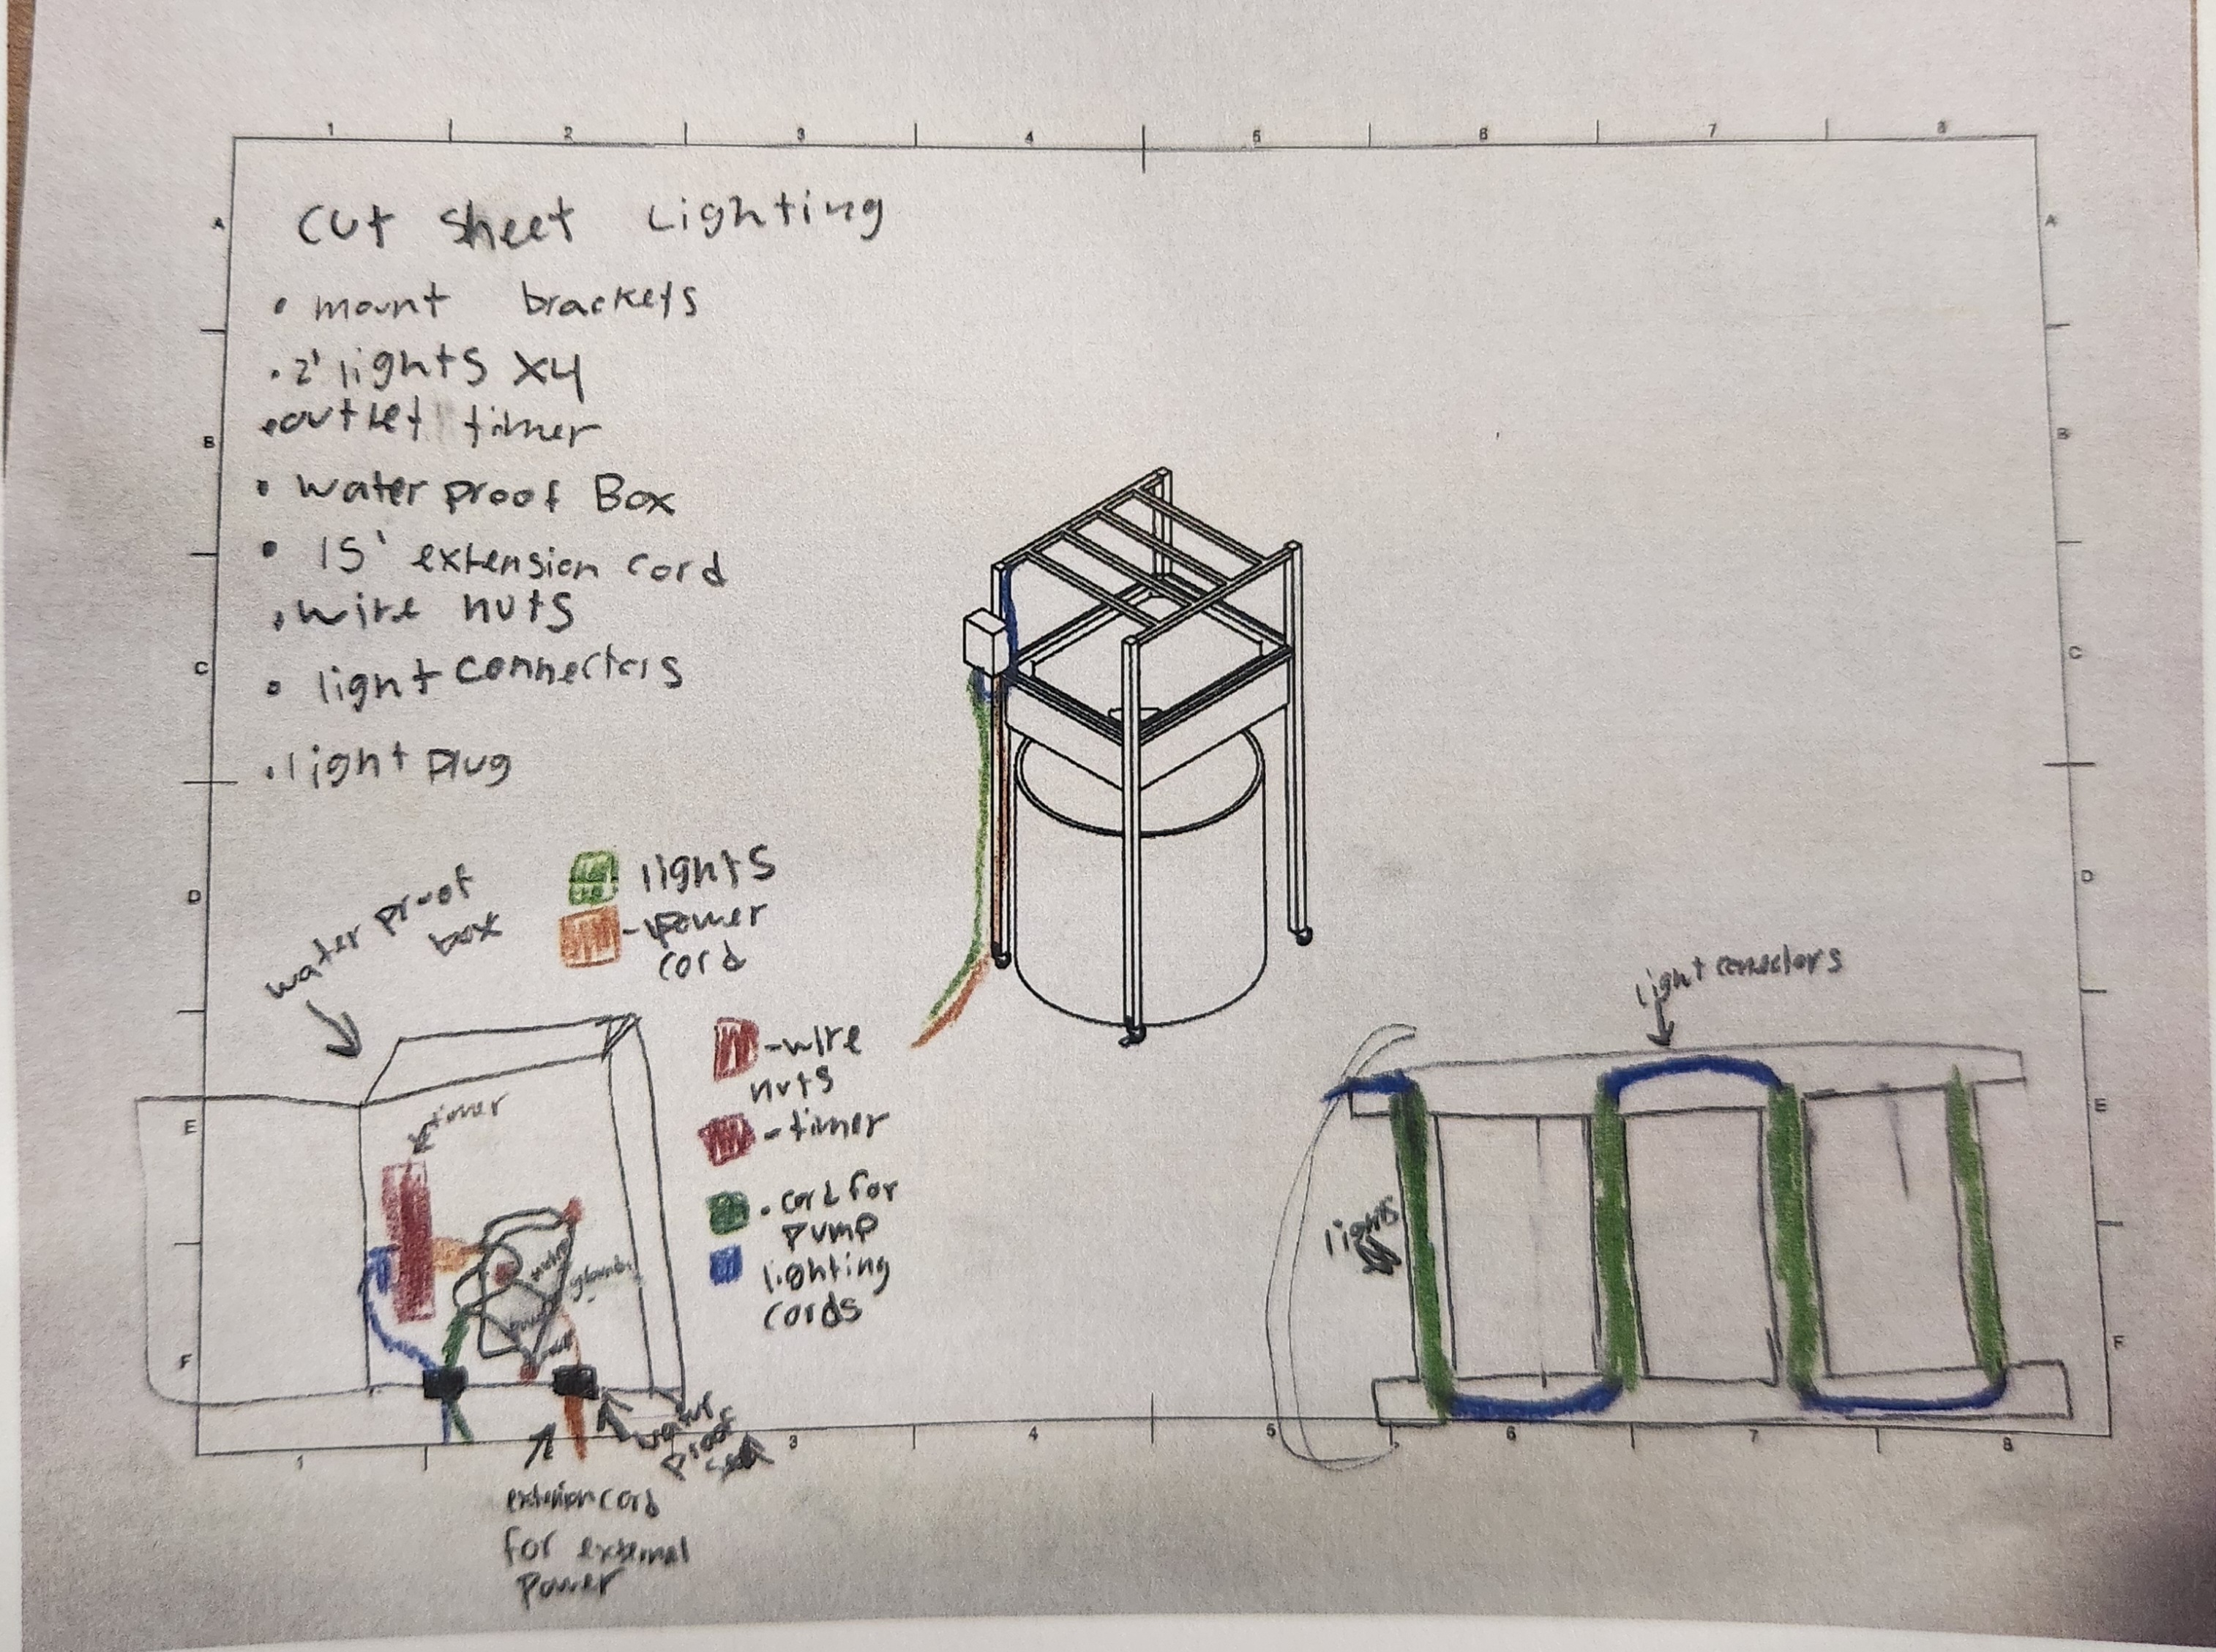 1 2 3 4 5 6 7 8
A A
cut sheet Lighting
• mount brackets
• 2' lights x4
B B
• outlet timer
• water proof Box
• 15' extension cord
• wire nuts
C C
• light connectors
• light plug
lights
D D
- power cord
water proof
box
light conectors
- wire
nuts
E E
timer
- timer
• cord for
pump
lights
lighting
cords
F F
water
proof
1 3 4 5 6 7 8
extension cord
for external
power